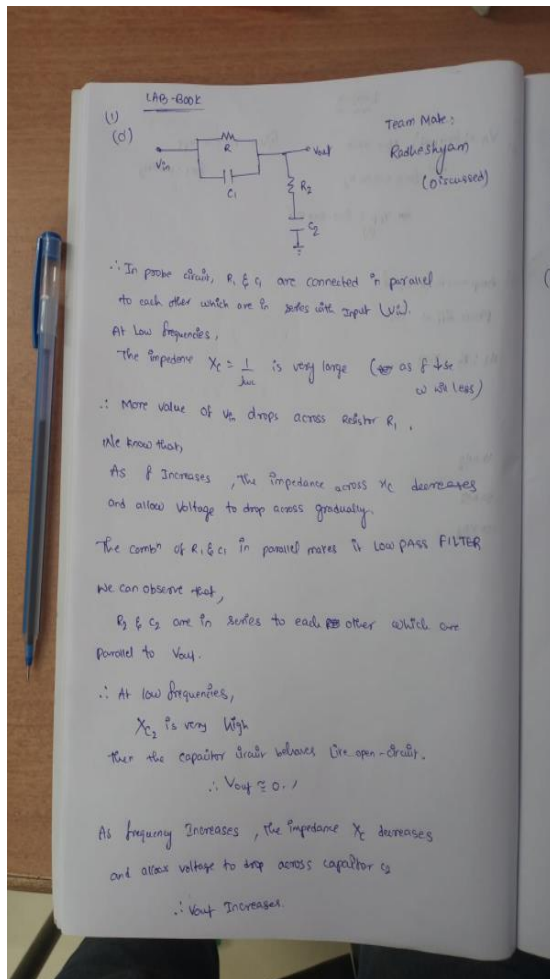 LAB-BOOK
(1)
(d)
Team Mate:
Radheshyam
(Discussed)
Vin
R
C1
Vout
R2
C2
∴ In probe circuit, R1 & C1 are connected in parallel
to each other which are in series with Input (Vin).
At Low frequencies,
The impedance Xc = 1/jωc is very large ( as f ↓se
ω will less)
∴ More value of Vin drops across Resistor R1.
We know that,
As f Increases, The impedance across Xc decreases
and allow voltage to drop across gradually.
The combn of R1 & C1 in parallel makes it LOW PASS FILTER
We can observe that,
R2 & C2 are in series to each other which are
parallel to Vout.
∴ At low frequencies,
Xc2 is very high
then the capacitor circuit behaves like open-circuit.
∴ Vout ≅ 0.
As frequency Increases, the impedance Xc decreases
and allow voltage to drop across capacitor C2
∴ Vout Increases.